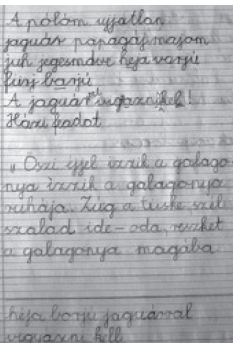 A pólóm ujjatlan
jaguár papagáj majom
juh jegesmedve héja varjú
fürj barjú
A jaguárral vigyázni kell!
Házi fadot
„ Őszi éjjel izzik a galago
nya izzik a galagonya
ruhája. Zúg a tüske szél
szalad ide-oda, reszket
a galagonya magába
héja borju jaguárral
vigyazni kell